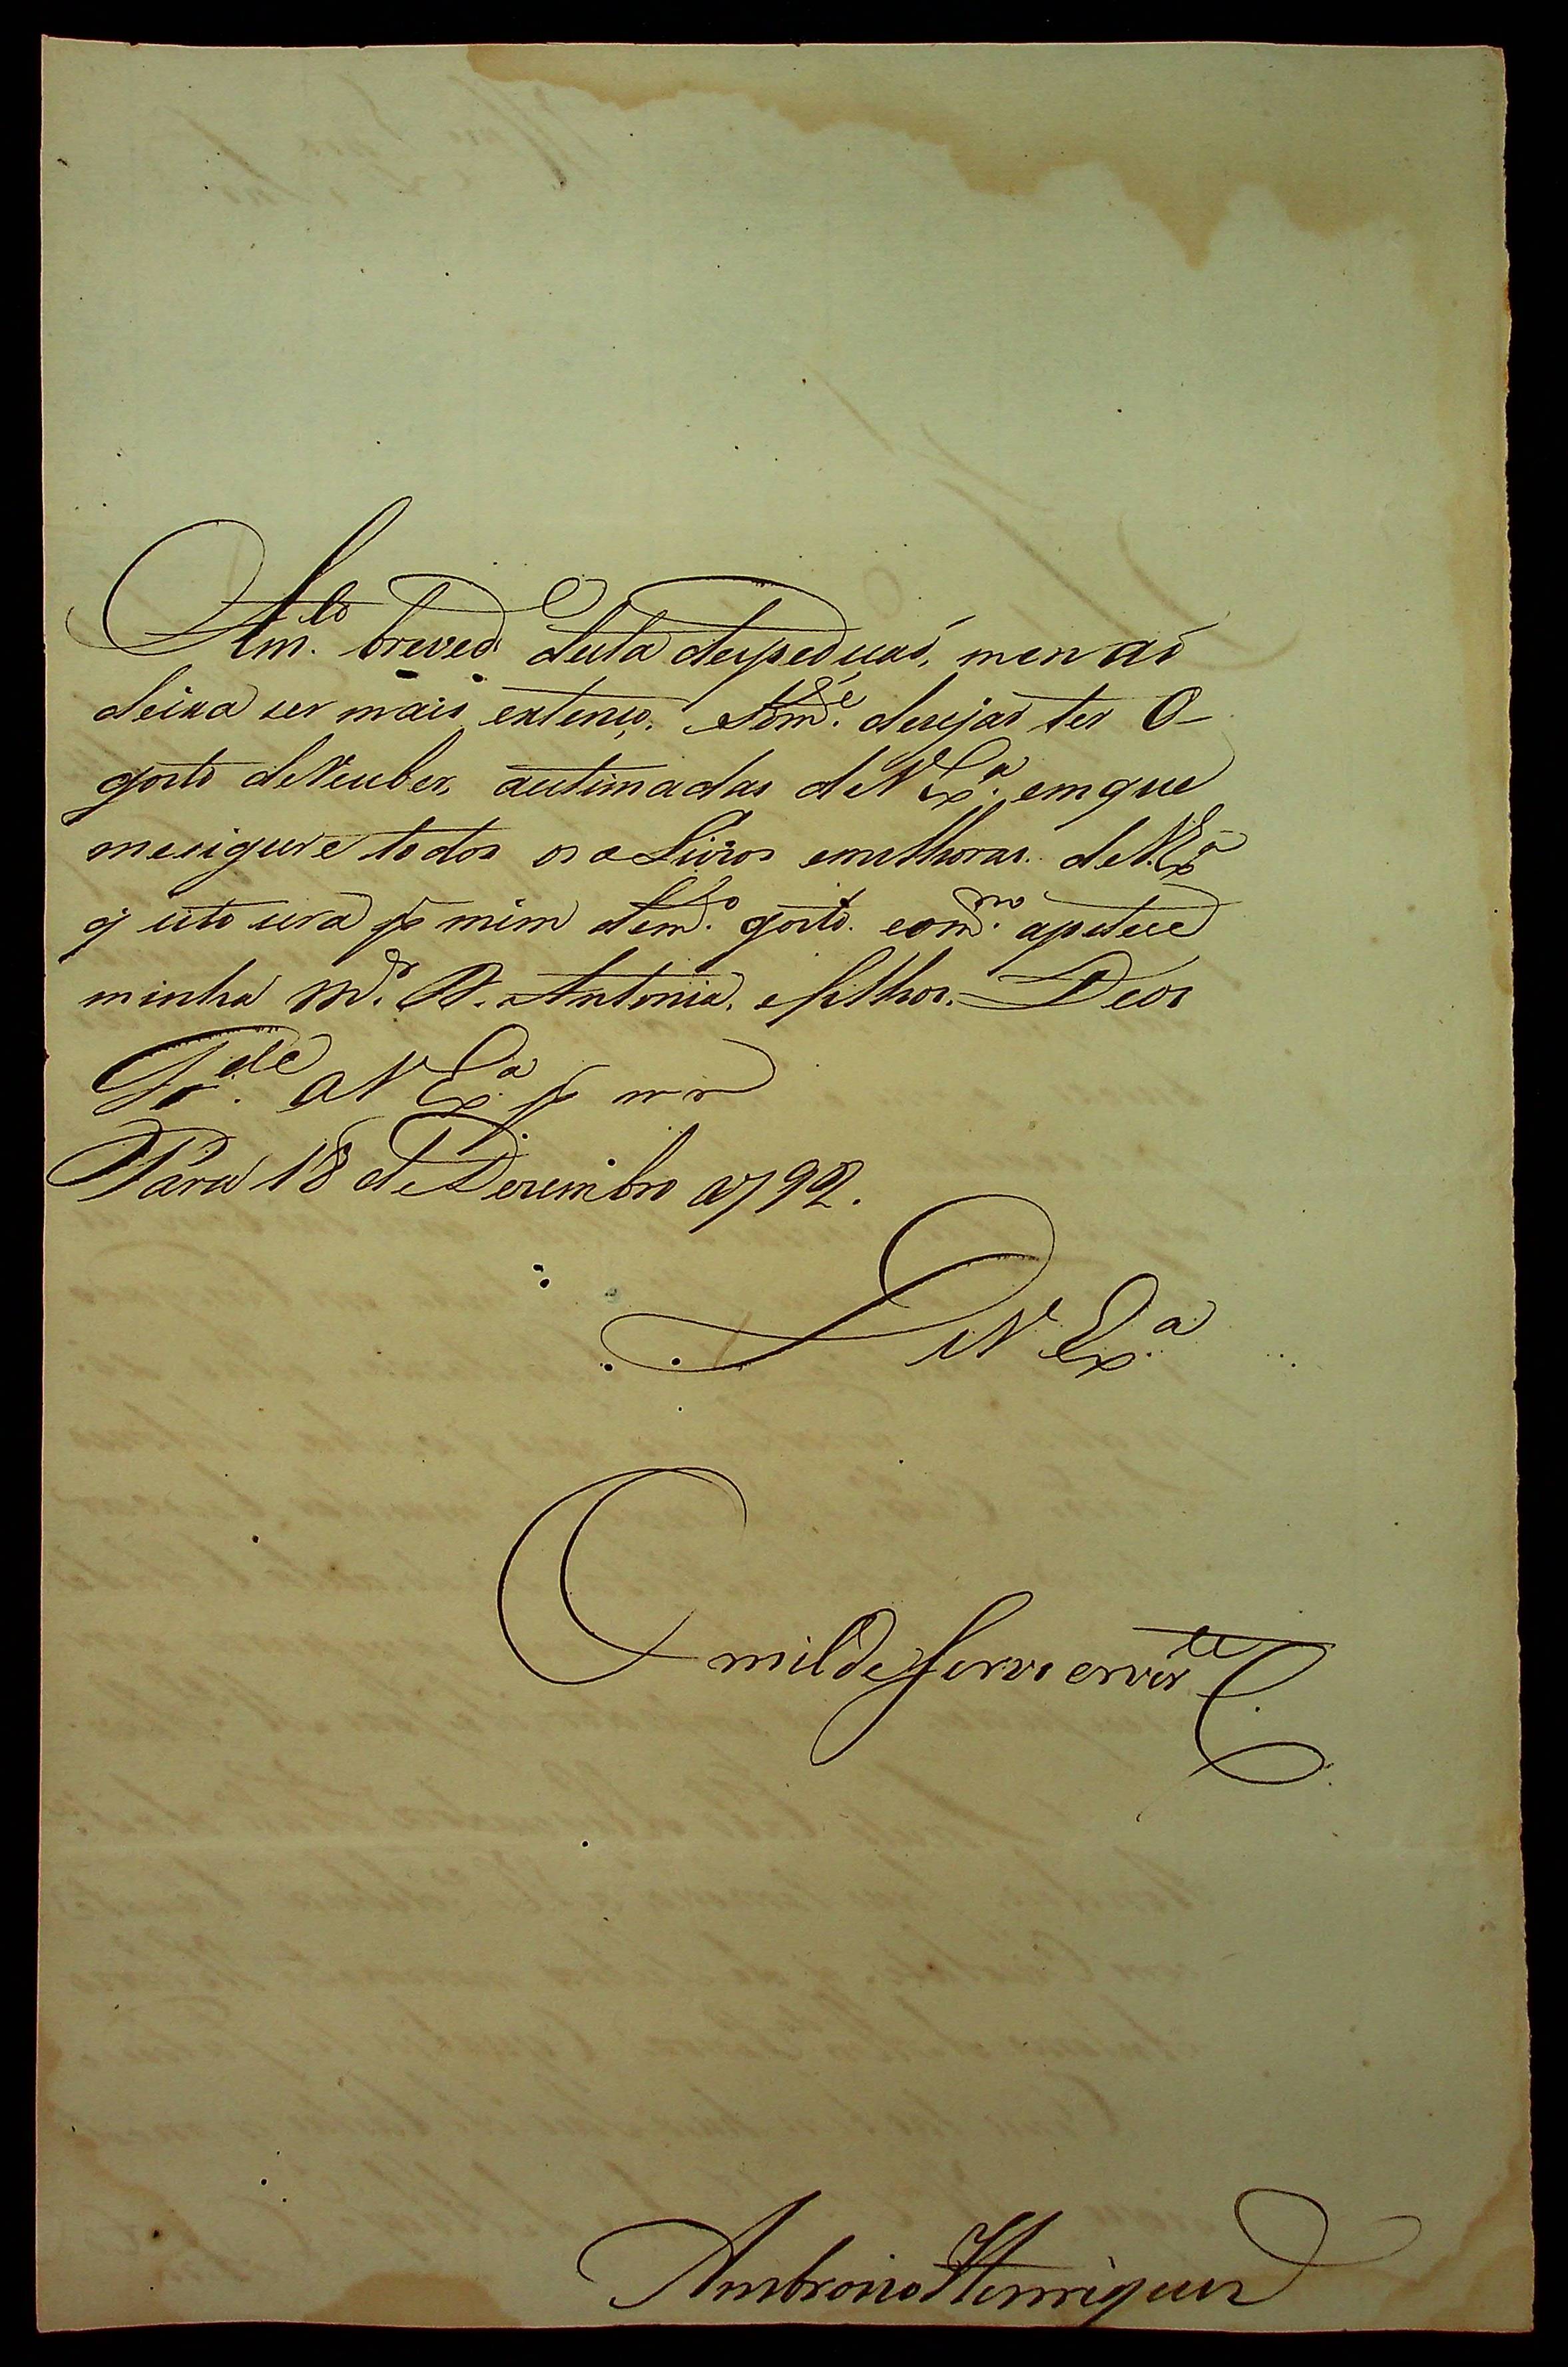 A m.to breved.e desta despedicaõ, menaõ
deixa ser mais extenço, e Som.te desejar ter O
gosto de Receber, as estimadas de V Ex.a em que
mesigure todos os alivios emelhoras. de V. Ex.a
q isto sera p.a mim de m.to gosto. eom.mo apetece
minha M.er D. Antonia, e filhos. Deos
G.de a V Ex.a p.r m a
Pará 18 de Dezembro de 1792.
De V Ex.a
Omilde Servo
Ambrozio Henriques